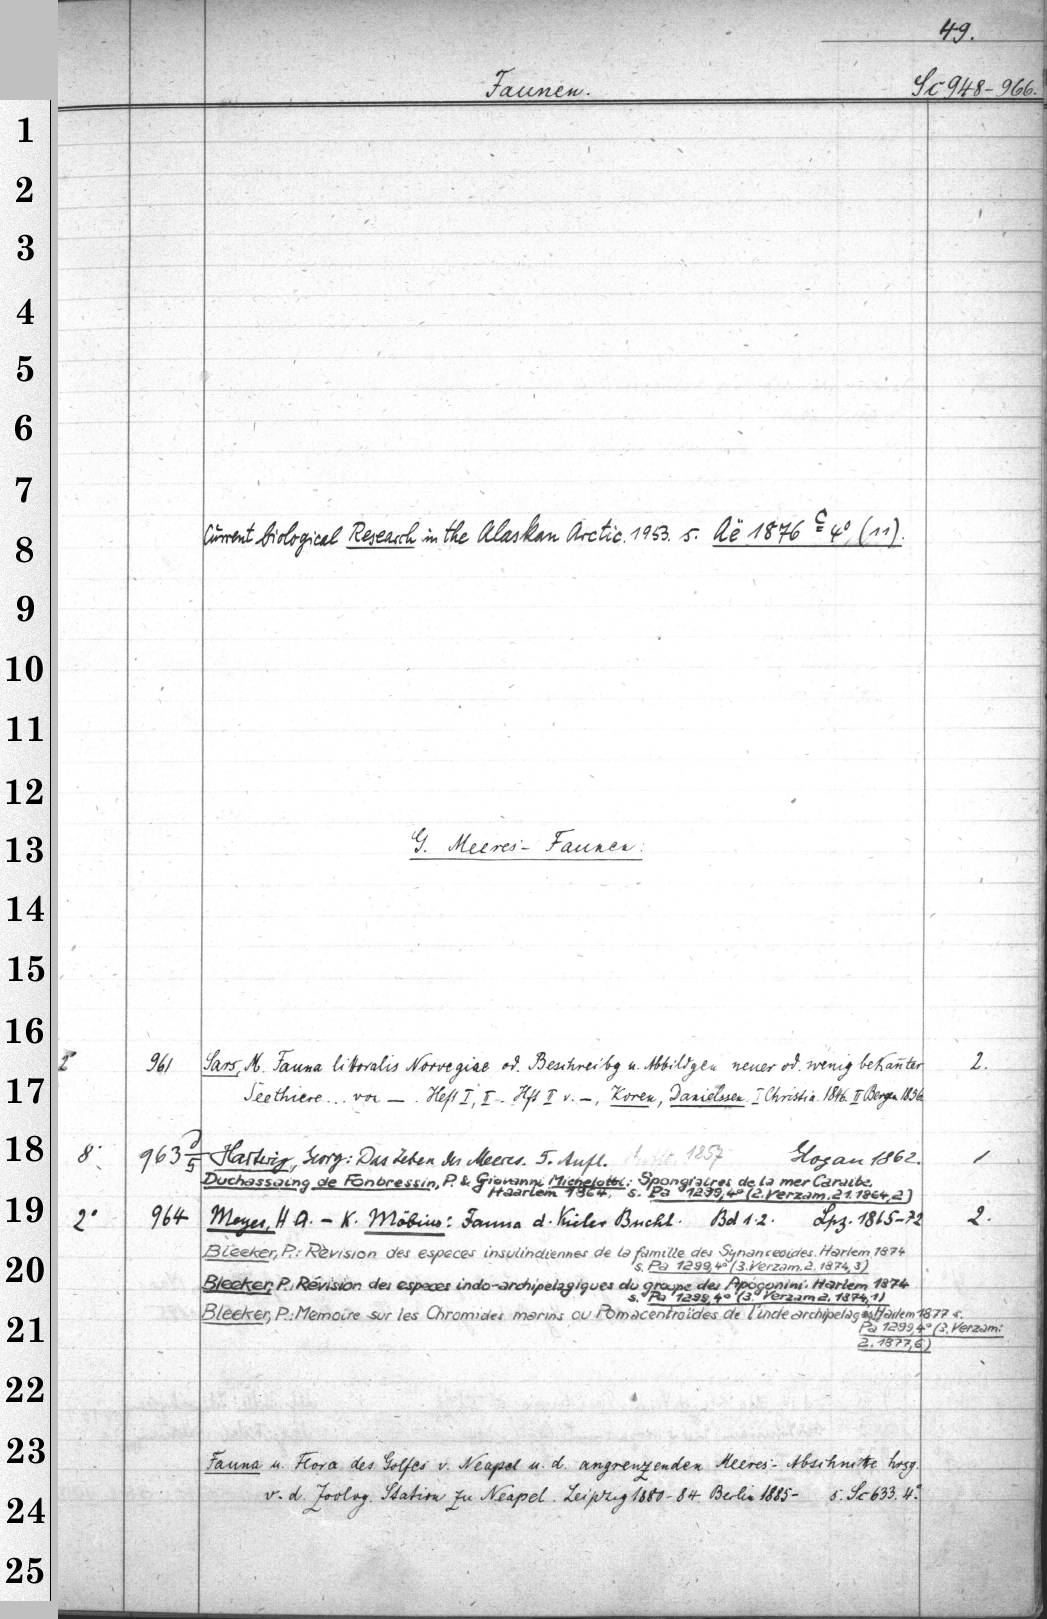 49.
Faunen. Sc 948-966.
1
2
3
4
5
6
7
Current biological Research in the Alaskan Arctic. 1953. s. Aë 1876 c 4°, (11).
8
9
10
11
12
G. Meeres-Faunen.
13
14
15
16
2° 961 Sars, M. Fauna littoralis Norvegiae od. Beschreibg u. Abbildgen neuer od. wenig bekañter 2.
17 Seethiere... von —. Heft I, II. Hft II v. —, Koren, Danielssen. I Christia. 1846. II Bergen 1856
18 8° 963 d/5 Hartwig, Georg: Das Leben des Meeres. 5. Aufl. 1857 Glogau 1862. 1
Duchassaing de Fonbressin, P. & Giovanni Michelotti: Spongiaires de la mer Caraibe.
Haarlem 1864. s. Pa 1299,4° (2. Verzam. 21. 1864, 2)
19 2° 964 Meyer, H A. - K. Möbius: Fauna d. Kieler Bucht. Bd 1.2. Lpz. 1865-72 2.
Bleeker, P.: Rèvision des especes insulindiennes de la famille des Synanceoides. Harlem 1874
20 s. Pa 1299,4° (3. Verzam. 2. 1874, 3)
Bleeker, P.: Révision des especes indo-archipelagiques du groupe des Apogonini. Harlem 1874
s. Pa 1299,4° (3. Verzam 2. 1874, 1)
Bleeker, P.: Memoire sur les Chromides marins ou Pomacentroïdes de l'inde archipelag. Harlem 1877 s.
21 Pa 1299,4° (3. Verzam:
2. 1877, 6)
22
23 Fauna u. Flora des Golfes v. Neapel u. d. angrenzenden Meeres-Abschnitte hrsg.
24 v. d. Zoolog. Station zu Neapel. Leipzig 1880-84. Berlin 1885- s. Sc 633. 4°.
25